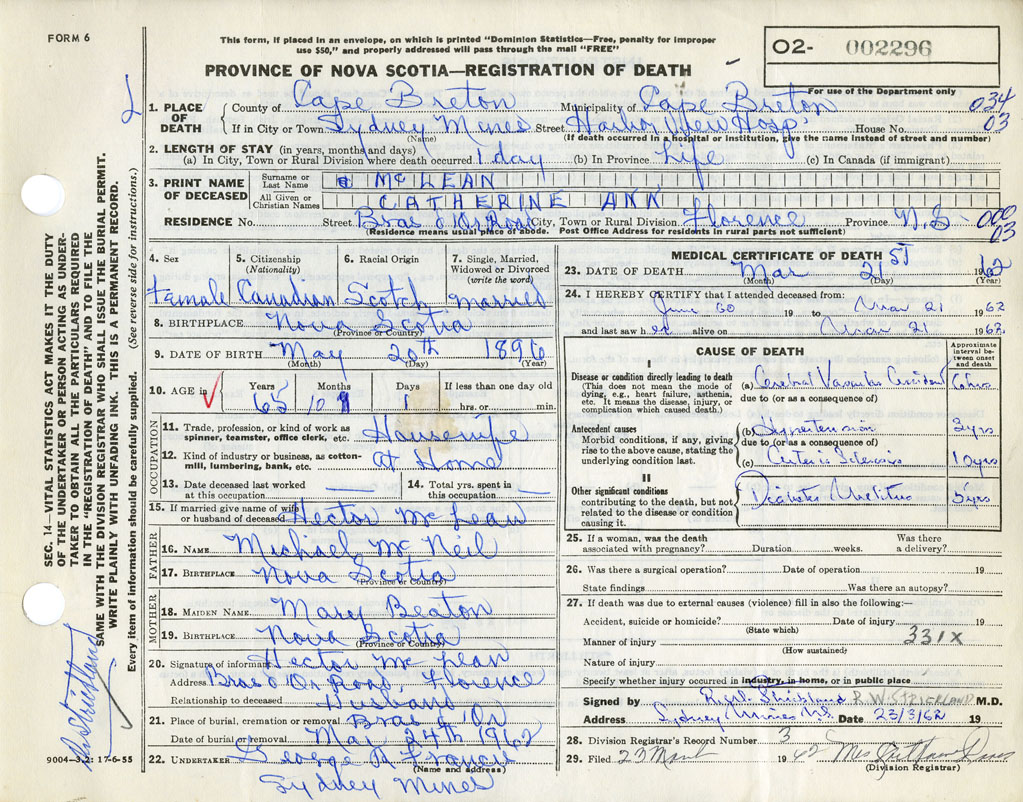 FORM 6
This form, if placed in an envelope, on which is printed "Dominion Statistics—Free, penalty for improper
use $50," and properly addressed will pass through the mail "FREE"
O2- 002296
PROVINCE OF NOVA SCOTIA—REGISTRATION OF DEATH
For use of the Department only
034
03
1. PLACE OF DEATH County of Cape Breton Municipality of Cape Breton
If in City or Town Sydney Mines Street Harbor View Hosp. House No.
(Name) (If death occurred in a hospital or institution, give the name instead of street and number)
2. LENGTH OF STAY (in years, months and days)
(a) In City, Town or Rural Division where death occurred 1 day (b) In Province Life (c) In Canada (if immigrant)
3. PRINT NAME OF DECEASED Surname or Last Name McLEAN
All Given or Christian Names CATHERINE ANN
RESIDENCE No. Street Bras d'Or Road City, Town or Rural Division Florence Province N.S- 000
03
(Residence means usual place of abode. Post Office Address for residents in rural parts not sufficient)
4. Sex 5. Citizenship (Nationality) 6. Racial Origin 7. Single, Married, Widowed or Divorced (write the word)
Female Canadian Scotch married
8. BIRTHPLACE Nova Scotia
(Province or Country)
9. DATE OF BIRTH May 20th 1896
(Month) (Day) (Year)
10. AGE in Years Months Days If less than one day old
65 10 1 hrs. or min.
OCCUPATION
11. Trade, profession, or kind of work as spinner, teamster, office clerk, etc. Housewife
12. Kind of industry or business, as cotton-mill, lumbering, bank, etc. At Home
13. Date deceased last worked at this occupation 14. Total yrs. spent in this occupation
15. If married give name of wife or husband of deceased Hector McLean
FATHER
16. NAME Michael McNeil
17. BIRTHPLACE Nova Scotia
(Province or Country)
MOTHER
18. MAIDEN NAME Mary Beaton
19. BIRTHPLACE Nova Scotia
(Province or Country)
20. Signature of informant Hector McLean
Address Bras d'Or Road, Florence
Relationship to deceased Husband
21. Place of burial, cremation or removal Bras d'Or
Date of burial or removal Mar 24th 1962
22. UNDERTAKER George R Francis
(Name and address)
Sydney Mines
MEDICAL CERTIFICATE OF DEATH
23. DATE OF DEATH Mar 21 ST 1962
(Month) (Day) (Year)
24. I HEREBY CERTIFY that I attended deceased from:
June 60 19 to Mar 21 1962
and last saw her alive on Mar 21 1962.
CAUSE OF DEATH
Approximate interval between onset and death
I
Disease or condition directly leading to death
(This does not mean the mode of dying, e.g., heart failure, asthenia, etc. It means the disease, injury, or complication which caused death.)
(a) Cerebral Vascular Accident
due to (or as a consequence of)
Antecedent causes
Morbid conditions, if any, giving rise to the above cause, stating the underlying condition last.
(b) Hypertension 2yrs
due to (or as a consequence of)
(c) 10yrs
II
Other significant conditions
contributing to the death, but not related to the disease or condition causing it.
Diabetes Mellitus 5yrs
25. If a woman, was the death associated with pregnancy? Duration weeks. Was there a delivery?
26. Was there a surgical operation? Date of operation 19
State findings Was there an autopsy?
27. If death was due to external causes (violence) fill in also the following:—
Accident, suicide or homicide? Date of injury 19
(State which)
331X
Manner of injury
(How sustained)
Nature of injury
Specify whether injury occurred in industry, in home, or in public place
Signed by R.W. Strickland R.W. STRICKLAND M.D.
Address Sydney Mines N.S. Date 23/3/62 19
28. Division Registrar's Record Number 3
29. Filed 23 March 1962
(Division Registrar)
SEC. 14—VITAL STATISTICS ACT MAKES IT THE DUTY
OF THE UNDERTAKER OR PERSON ACTING AS UNDER-
TAKER TO OBTAIN ALL THE PARTICULARS REQUIRED
IN THE "REGISTRATION OF DEATH" AND TO FILE THE
SAME WITH THE DIVISION REGISTRAR WHO SHALL ISSUE THE BURIAL PERMIT.
WRITE PLAINLY WITH UNFADING INK. THIS IS A PERMANENT RECORD.
Every item of information should be carefully supplied. (See reverse side for instructions.)
9004-3.2: 17-6-55